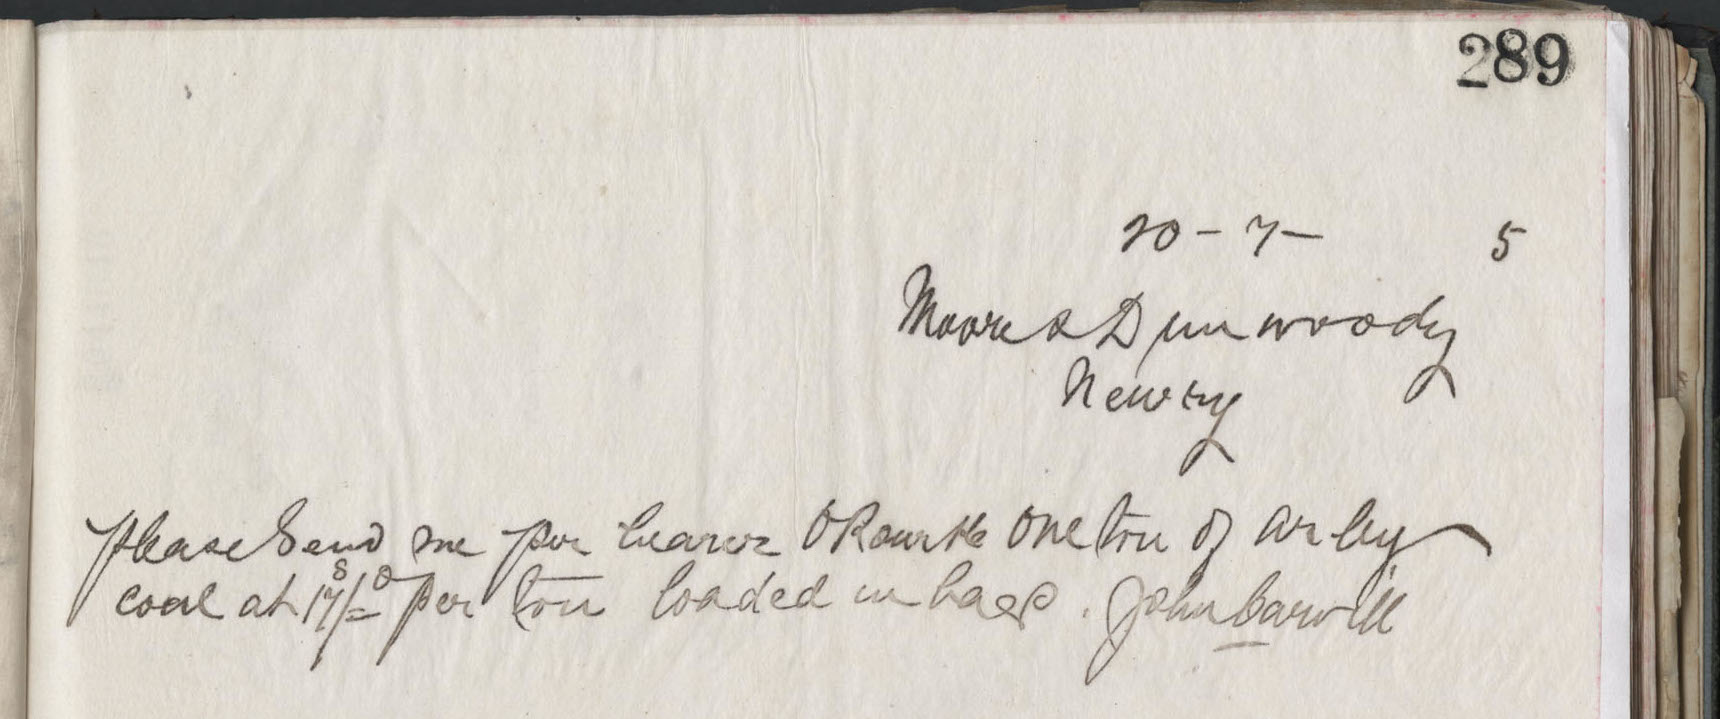 289
20-7- 5
Moore & Dunwoody
Newry
Please Send me per bearer O Rourke One ton of arley
coal at 17s/=d per ton loaded in bags. John Carvill